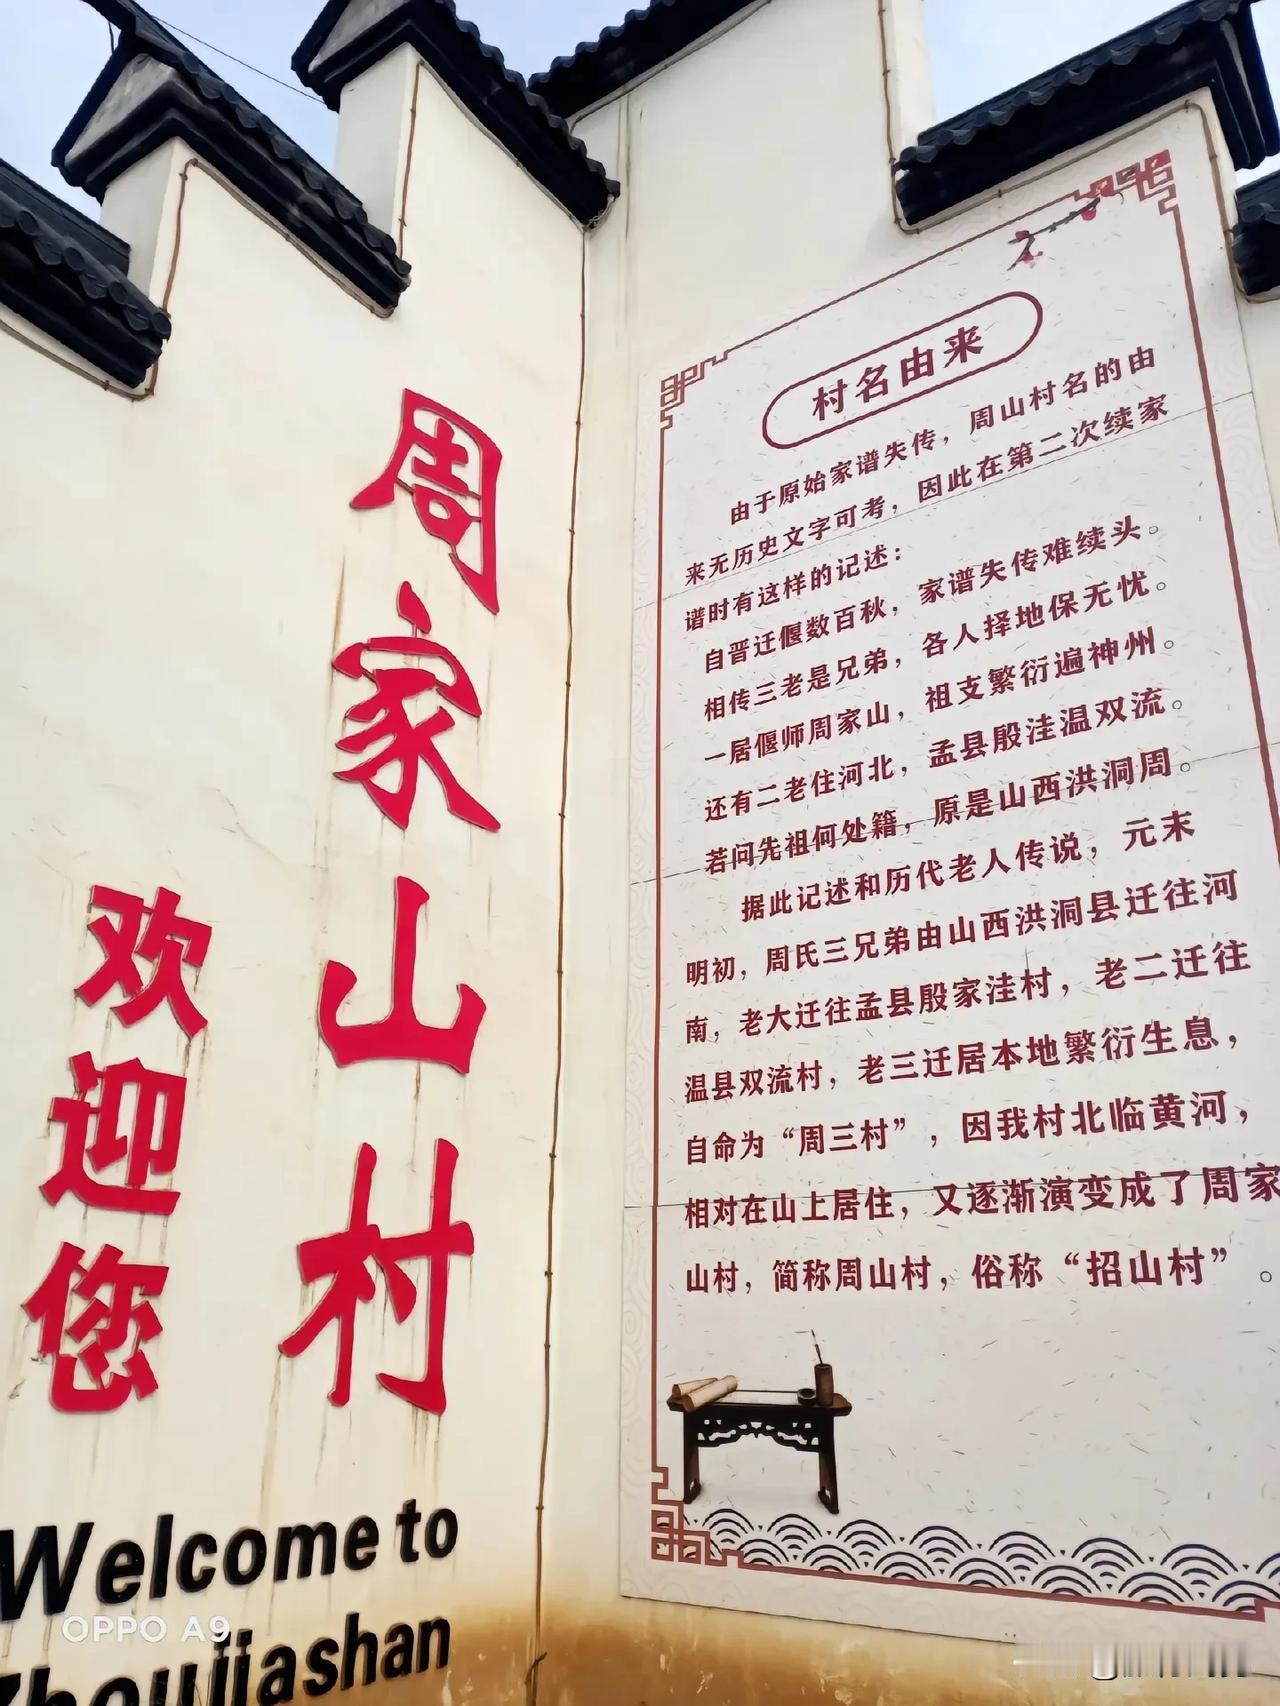 周家山村
欢迎您
Welcome to
Zhoujiashan
村名由来
由于原始家谱失传，周山村名的由
来无历史文字可考，因此在第二次续家
谱时有这样的记述：
自晋迁偃数百秋，家谱失传难续头。
相传三老是兄弟，各人择地保无忧。
一居偃师周家山，祖支繁衍遍神州。
还有二老住河北，孟县殷洼温双流。
若问先祖何处籍，原是山西洪洞周。
据此记述和历代老人传说，元末
明初，周氏三兄弟由山西洪洞县迁往河
南，老大迁往孟县殷家洼村，老二迁往
温县双流村，老三迁居本地繁衍生息，
自命为“周三村”，因我村北临黄河，
相对在山上居住，又逐渐演变成了周家
山村，简称周山村，俗称“招山村”。
OPPO A9